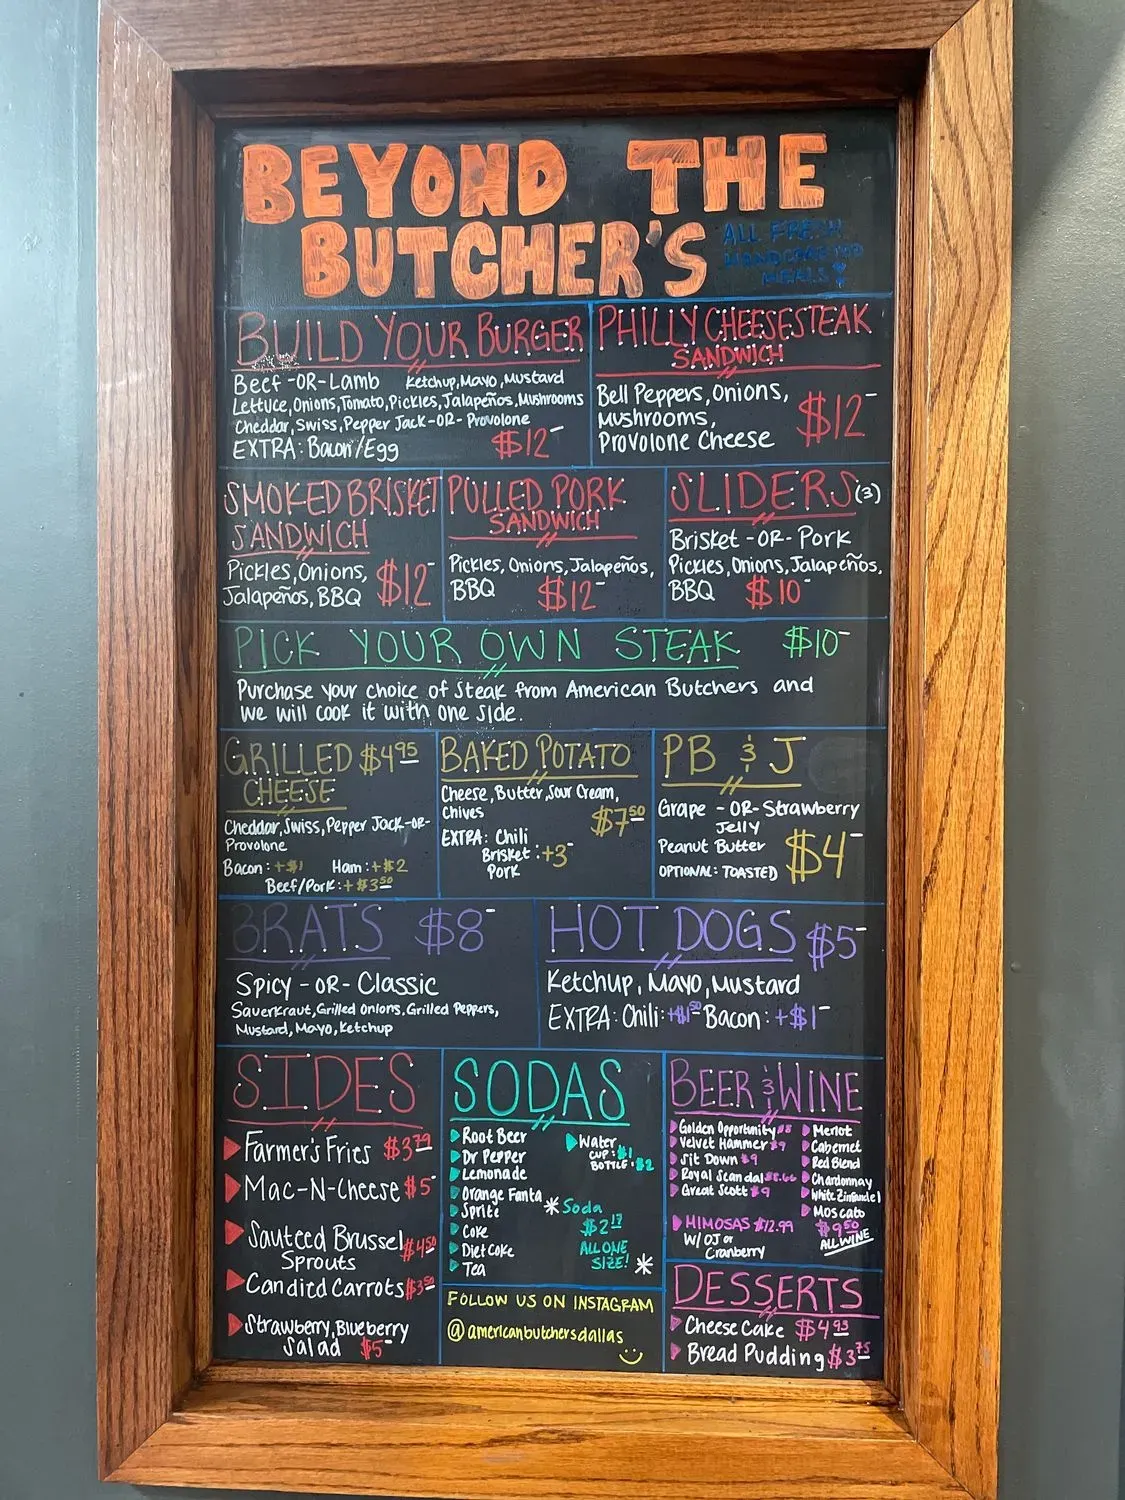 BEYOND THE
BUTCHER'S
ALL FRESH
HANDCRAFTED
MEALS!
BUILD YOUR BURGER
Beef -OR- Lamb Ketchup, Mayo, Mustard
Lettuce, Onions, Tomato, Pickles, Jalapeños, Mushrooms
Cheddar, Swiss, Pepper Jack -OR- Provolone
EXTRA: Bacon/Egg
$12-
PHILLY CHEESESTEAK
SANDWICH
Bell Peppers, Onions,
Mushrooms,
Provolone Cheese
$12-
SMOKED BRISKET
SANDWICH
Pickles, Onions,
Jalapeños, BBQ
$12-
PULLED PORK
SANDWICH
Pickles, Onions, Jalapeños,
BBQ
$12-
SLIDERS (3)
Brisket -OR- Pork
Pickles, Onions, Jalapeños,
BBQ
$10-
PICK YOUR OWN STEAK $10-
Purchase your choice of Steak from American Butchers and
We will cook it with one side.
GRILLED $4.95
CHEESE
Cheddar, Swiss, Pepper Jack -OR-
Provolone
Bacon: +$1 Ham: +$2
Beef/Pork: +$3.50
BAKED POTATO
Cheese, Butter, Sour Cream,
Chives
$7.50
EXTRA: Chili
Brisket : +3-
Pork
PB & J
Grape -OR- Strawberry
Jelly
Peanut Butter
OPTIONAL: TOASTED
$4-
BRATS $8-
Spicy -OR- Classic
Sauerkraut, Grilled Onions, Grilled Peppers,
Mustard, Mayo, Ketchup
HOT DOGS $5-
Ketchup, Mayo, Mustard
EXTRA: Chili: +$1.50 Bacon: +$1-
SIDES
Farmer's Fries $3.79
Mac-N-Cheese $5-
Sauteed Brussel
Sprouts $4.50
Candied Carrots $3.50
Strawberry, Blueberry
Salad $5-
SODAS
Root Beer
Dr Pepper
Lemonade
Orange Fanta
Sprite
Coke
Diet Coke
Tea
Water
CUP: $1
BOTTLE: $2
* Soda
$2.17
ALL ONE
SIZE! *
FOLLOW US ON INSTAGRAM
@americanbutchersdallas
BEER & WINE
Golden Opportunity $8
Velvet Hammer $9
Sit Down $9
Royal Scandal
Great Scott $9
MIMOSAS $12.99
W/ OJ or
Cranberry
Merlot
Cabernet
Red Blend
Chardonnay
White Zinfandel
Moscato
$9.50
ALL WINE
DESSERTS
Cheese Cake $4.95
Bread Pudding $3.75